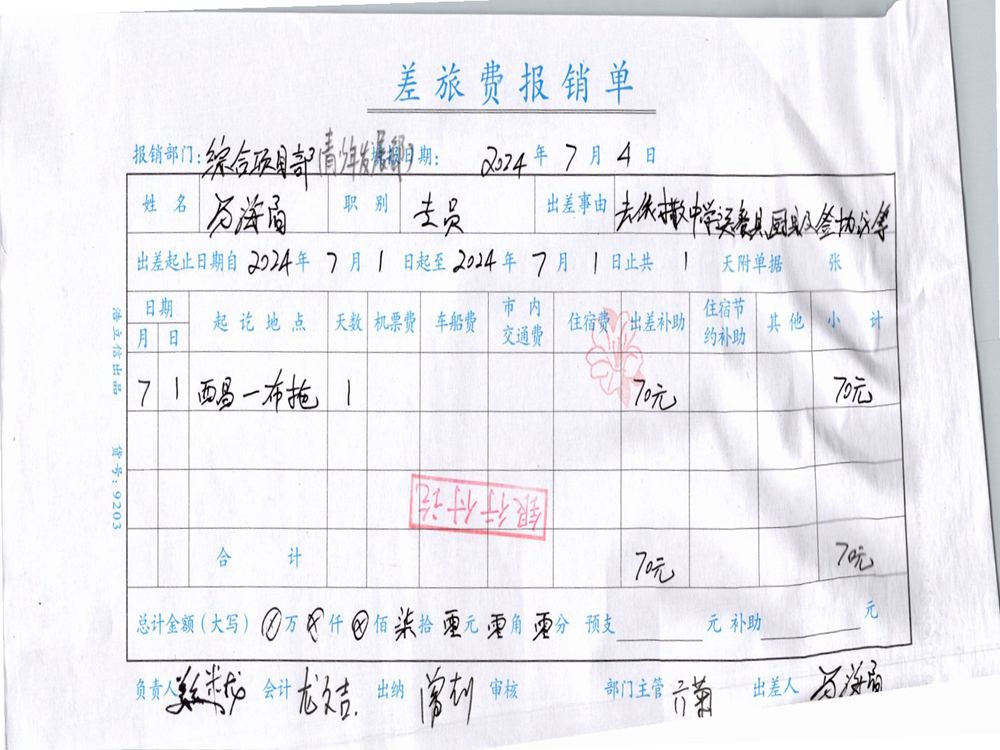 差旅费报销单
报销部门：综合项目部（青少年发展部） 填报日期： 2024 年 7 月 4 日
姓 名 职 别 专员 出差事由 去依撒中学送餐具厨具及签协议等
出差起止日期自 2024 年 7 月 1 日起至 2024 年 7 月 1 日止共 1 天附单据 张
日期 起讫地点 天数 机票费 车船费 市内交通费 住宿费 出差补助 住宿节约补助 其他 小计
月 日
7 1 西昌—布拖 1 70元 70元
银行付讫
合 计 70元 70元
总计金额（大写） ⊗万 ⊗仟 ⊗佰 柒拾 零元 零角 零分 预支 元 补助 元
负责人 会计 出纳 审核 部门主管 出差人
浩立信出品 货号：9203